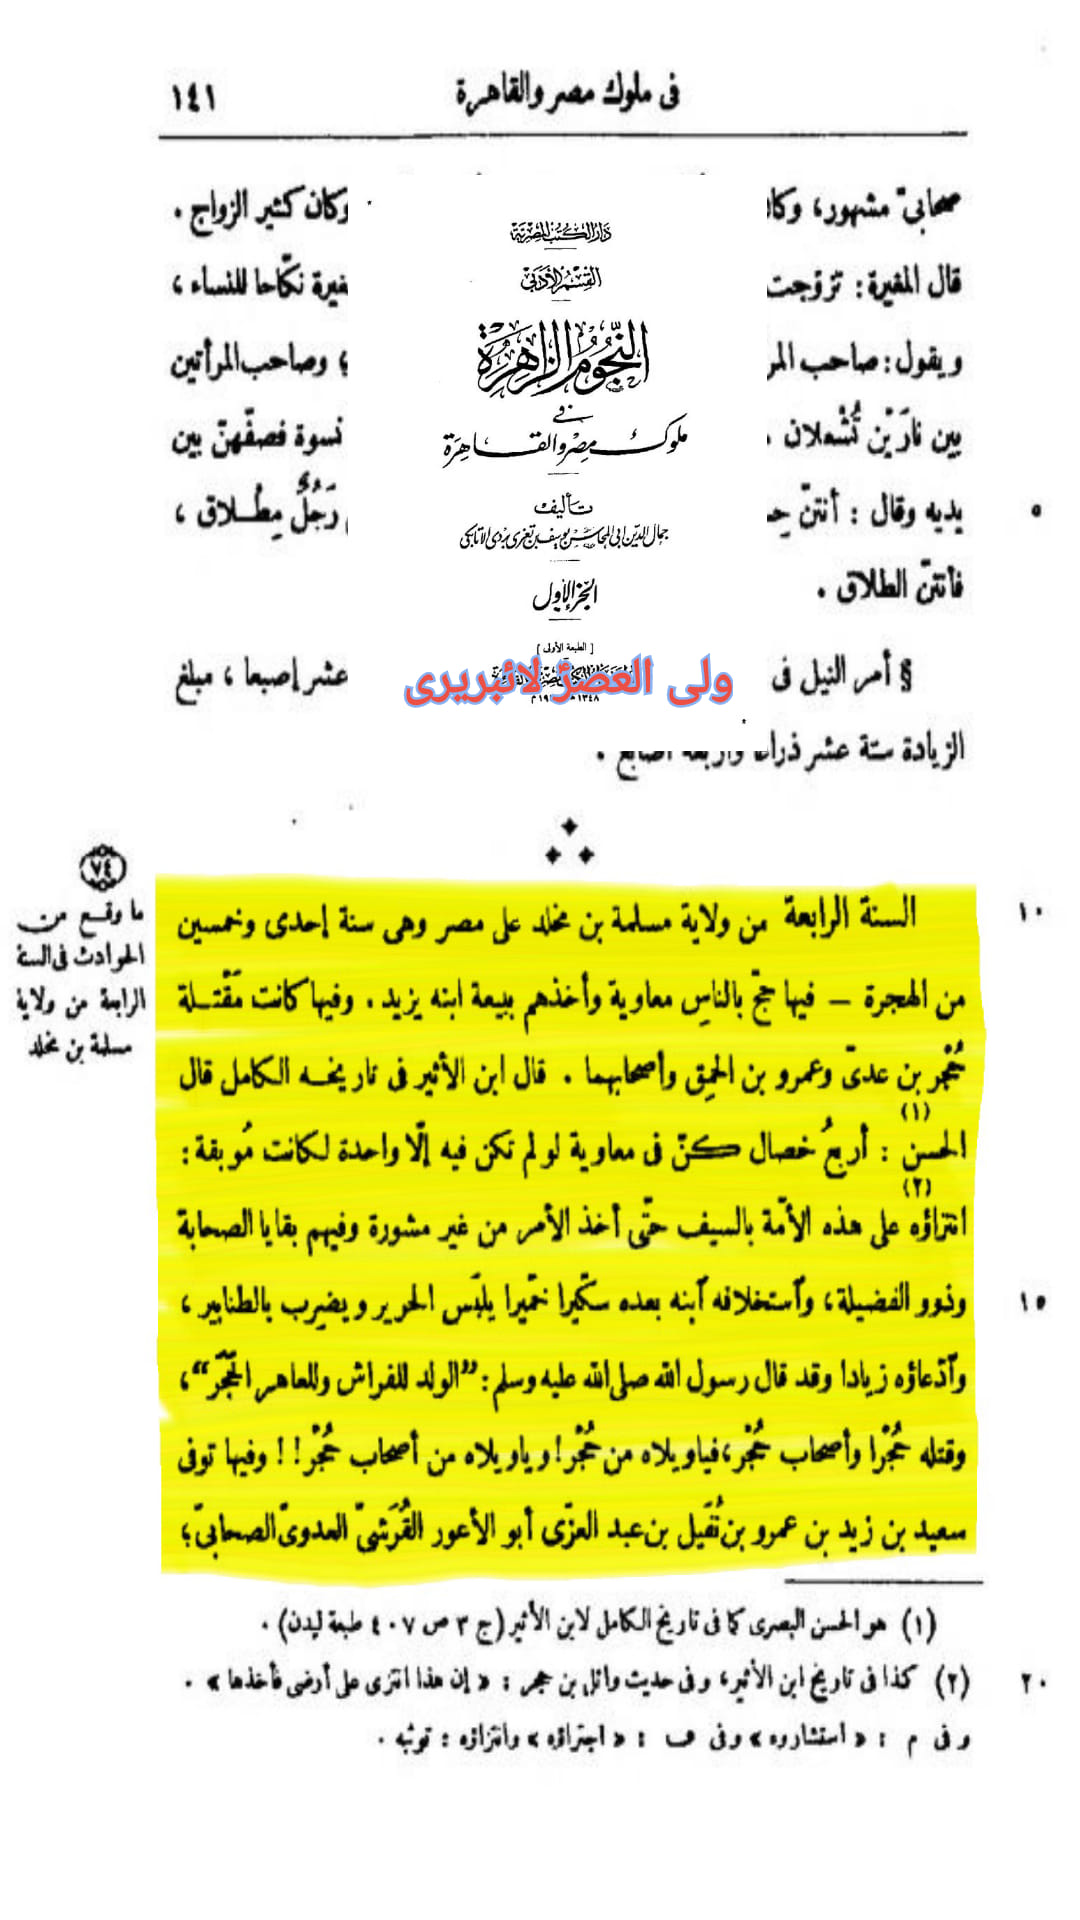 فى ملوك مصر والقاهرة ١٤١
صحابىّ مشهور، وكان
وكان كثير الزواج .
قال المغيرة : تزوّجت
نكّاحا للنساء ،
ويقول : صاحب
؛ وصاحب المرأتين
بين نارَيْن تُشْعلان
نسوة فصفّهنّ بين
يديه وقال : أنتنّ
رَجُلٌ مِطْلاق ،
٥
فأنتنّ الطلاق .
§ أمر النيل فى
عشر إصبعا ، مبلغ
الزيادة ستة عشر ذراعا وأربعة أصابع .
دار الكتب المصرية
القسم الأدبى
النجوم الزاهرة
فى
ملوك مصر والقاهرة
تأليف
جمال الدين أبى المحاسن يوسف بن تغرى بردى الأتابكى
الجزء الأول
[ الطبعة الأولى ]
ولی العصرؑ لائبریری
١٣٤٨
٧٤
ما وقع من
الحوادث فى السنة
الرابعة من ولاية
مسلمة بن مخلد
السنة الرابعة من ولاية مسلمة بن مخلد على مصر وهى سنة إحدى وخمسين
١٠
من الهجرة — فيها حجّ بالناس معاوية وأخذهم ببيعة ابنه يزيد . وفيها كانت مَقْتلة
حُجْر بن عدىّ وعمرو بن الحَمِق وأصحابهما . قال ابن الأثير فى تاريخه الكامل قال
الحسن (١) : أربعُ خصال كنّ فى معاوية لو لم تكن فيه إلّا واحدة لكانت مُوبقة :
انتزاؤه (٢) على هذه الأمّة بالسيف حتّى أخذ الأمر من غير مشورة وفيهم بقايا الصحابة
وذوو الفضيلة ، وٱستخلافه ٱبنه بعده سكّيرا خمّيرا يلبَس الحرير ويضرب بالطنابير ،
١٥
وٱدّعاؤه زيادا وقد قال رسول الله صلى الله عليه وسلم : ”الولد للفراش وللعاهر الحَجَر“ ،
وقتله حُجْرا وأصحاب حُجْر ، فياويلاه من حُجْر ! وياويلاه من أصحاب حُجْر ! ! وفيها توفى
سعيد بن زيد بن عمرو بن نُفَيل بن عبد العزّى أبو الأعور القُرَشىّ العدوىّ الصحابىّ ؛
(١) هو الحسن البصرى كما فى تاريخ الكامل لابن الأثير (ج ٣ ص ٤٠٧ طبعة ليدن) .
(٢) كذا فى تاريخ ابن الأثير، وفى حديث وائل بن حجر : « إن هذا انتزى على أرضى فأخذها » .
٢٠
وفى م : « استشاروه » وفى ف : « اجتراؤه » وانتزاؤه : توثبه .